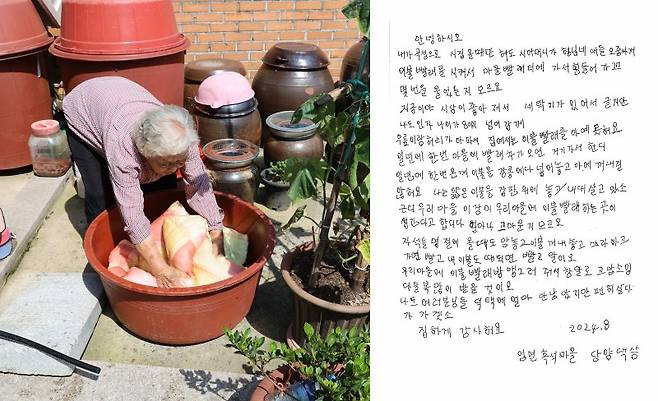 안녕하시오
내가 곡성으로 시집 올때만 해도 시어머니가 형님네 애들 오줌싸개
이불 빨래를 시켜서 마을 빨래터에 가서 힘들어 가꼬
몇번을 울었는지 모르요
지금이야 시상이 좋아져서 세탁기가 있어서 글지만
나도 인자 나이가 80이 넘어 감께
무릎이랑 허리가 아파서 집에서는 이불 빨래를 아예 못혀요
일년에 한번 마을이 빨래차가 오면 거기가서 헌디
일년에 한번 옴께 이불을 장롱에다 넣어놓고 아예 꺼내질
않혀요 나는 얇은 이불을 장판 위에 놓고 내나 살고 있소
근디 우리 마을 이장이 우리마을에 이불 빨래하는 곳이
생긴다고 합디다 얼마나 고마운지 모르요
자식들 명절에 올때도 맘놓고 이불 꺼내놓고 가라하고
가면 빨고 내 이불도 때되면 빨고 할라요
우리마을에 이불 빨래방 맹그러 줘서 참말로 고맙소잉
다들 복 많이 받을 것이오
나도 여러분들 덕택에 얼마 안남았지만 편히 살다
가 가겟소
집하게 감사허요 2024.8
입면 흑석마을 담양댁 씀